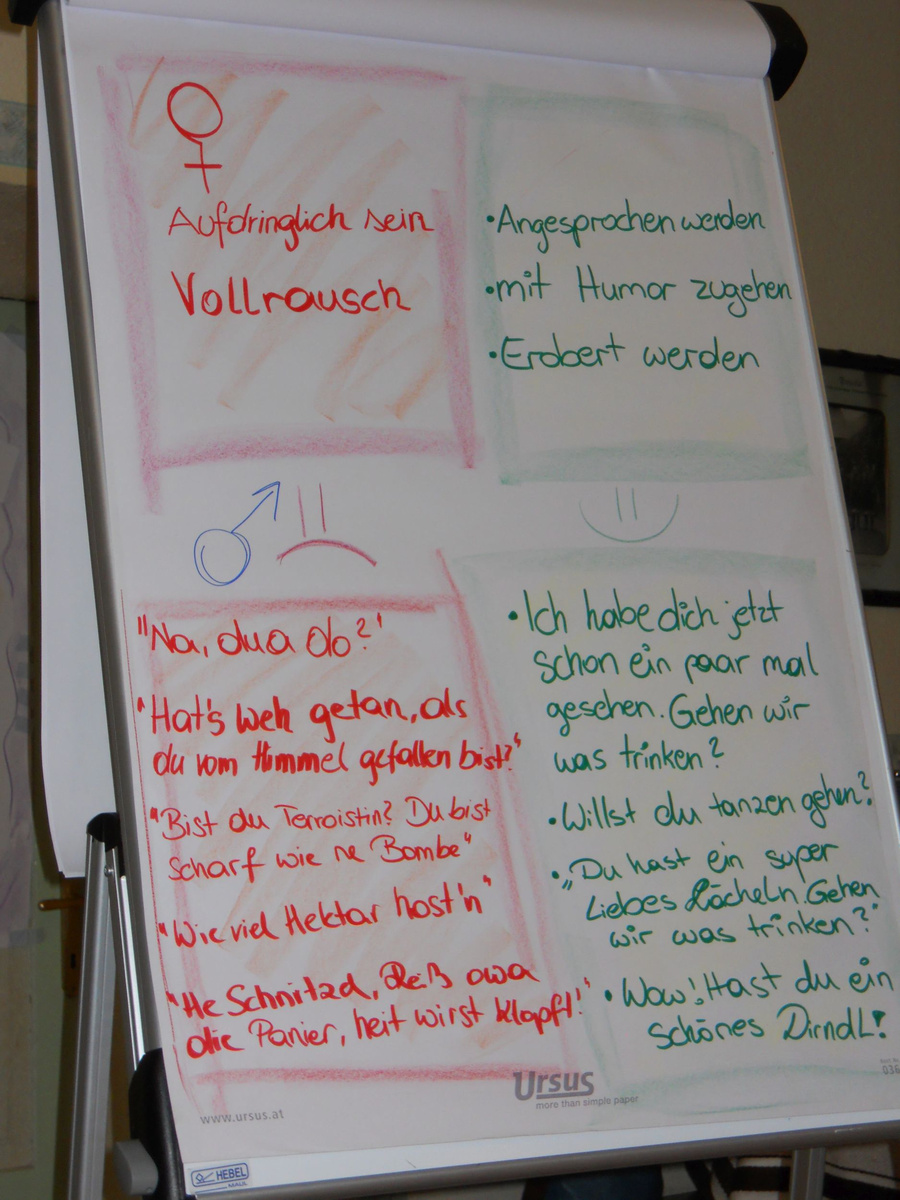 Aufdringlich sein
Vollrausch
• Angesprochen werden
• mit Humor zugehen
• Erobert werden
"Na, du a do?"
"Hat's weh getan, als
du vom Himmel gefallen bist?"
"Bist du Terroistin? Du bist
Scharf wie ne Bombe"
"Wie viel Hektar host'n"
"He Schnitzel, reiß owa
die Panier, heit wirst klopft!"
• Ich habe dich jetzt
schon ein paar mal
gesehen. Gehen wir
was trinken?
• Willst du tanzen gehen?
• „Du hast ein super
Liebes Lächeln. Gehen
wir was trinken?"
• Wow! Hast du ein
schönes Dirndl!
www.ursus.at
Ursus
more than simple paper
036
HEBEL
MAUL